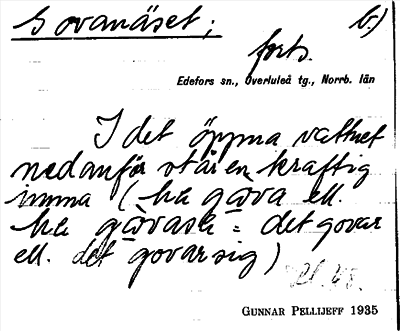 Govanäset; b.)
forts.
Edefors sn., Överluleå tg., Norrb. län
I det öppna vattnet
nedanför står en kraftig
imma (hä gøva ell.
hä gøvasä = det govar
ell. det govar sig)
GUNNAR PELLIJEFF 1935